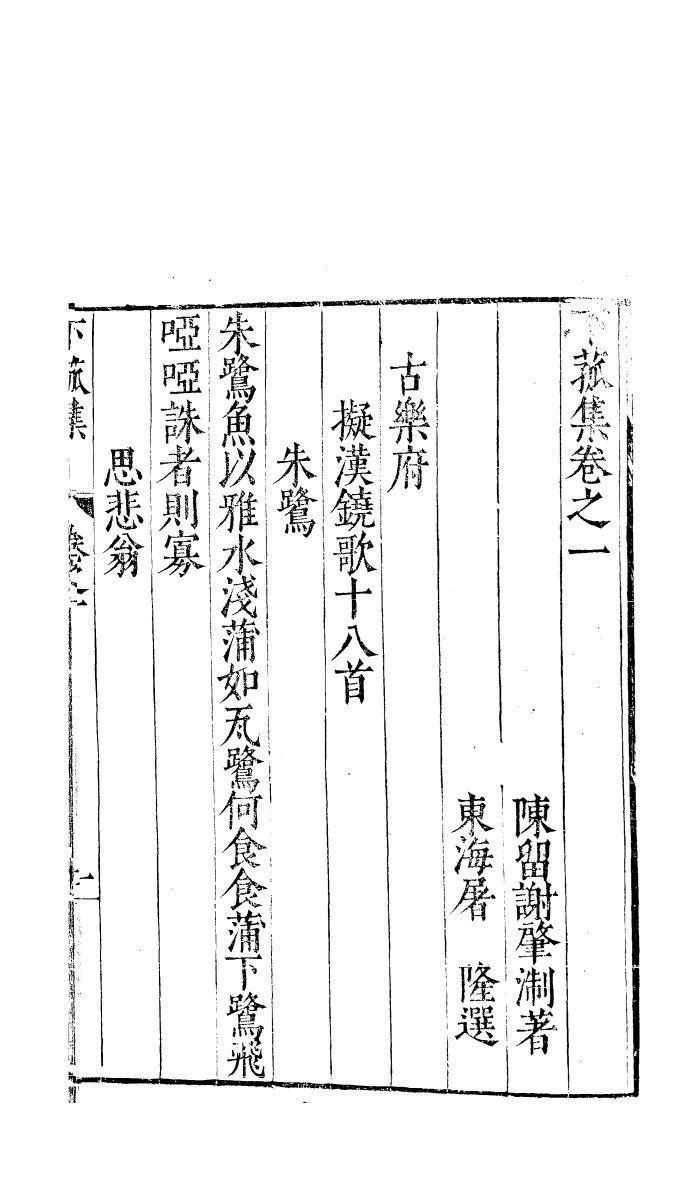 下菰集卷之一
陳留謝肇淛著
東海屠　隆選
古樂府
擬漢鐃歌十八首
朱鷺
朱鷺魚以雅水淺蒲如瓦鷺何食食蒲下鷺飛
啞啞誅者則寡
思悲翁
下菰集
卷之一
一